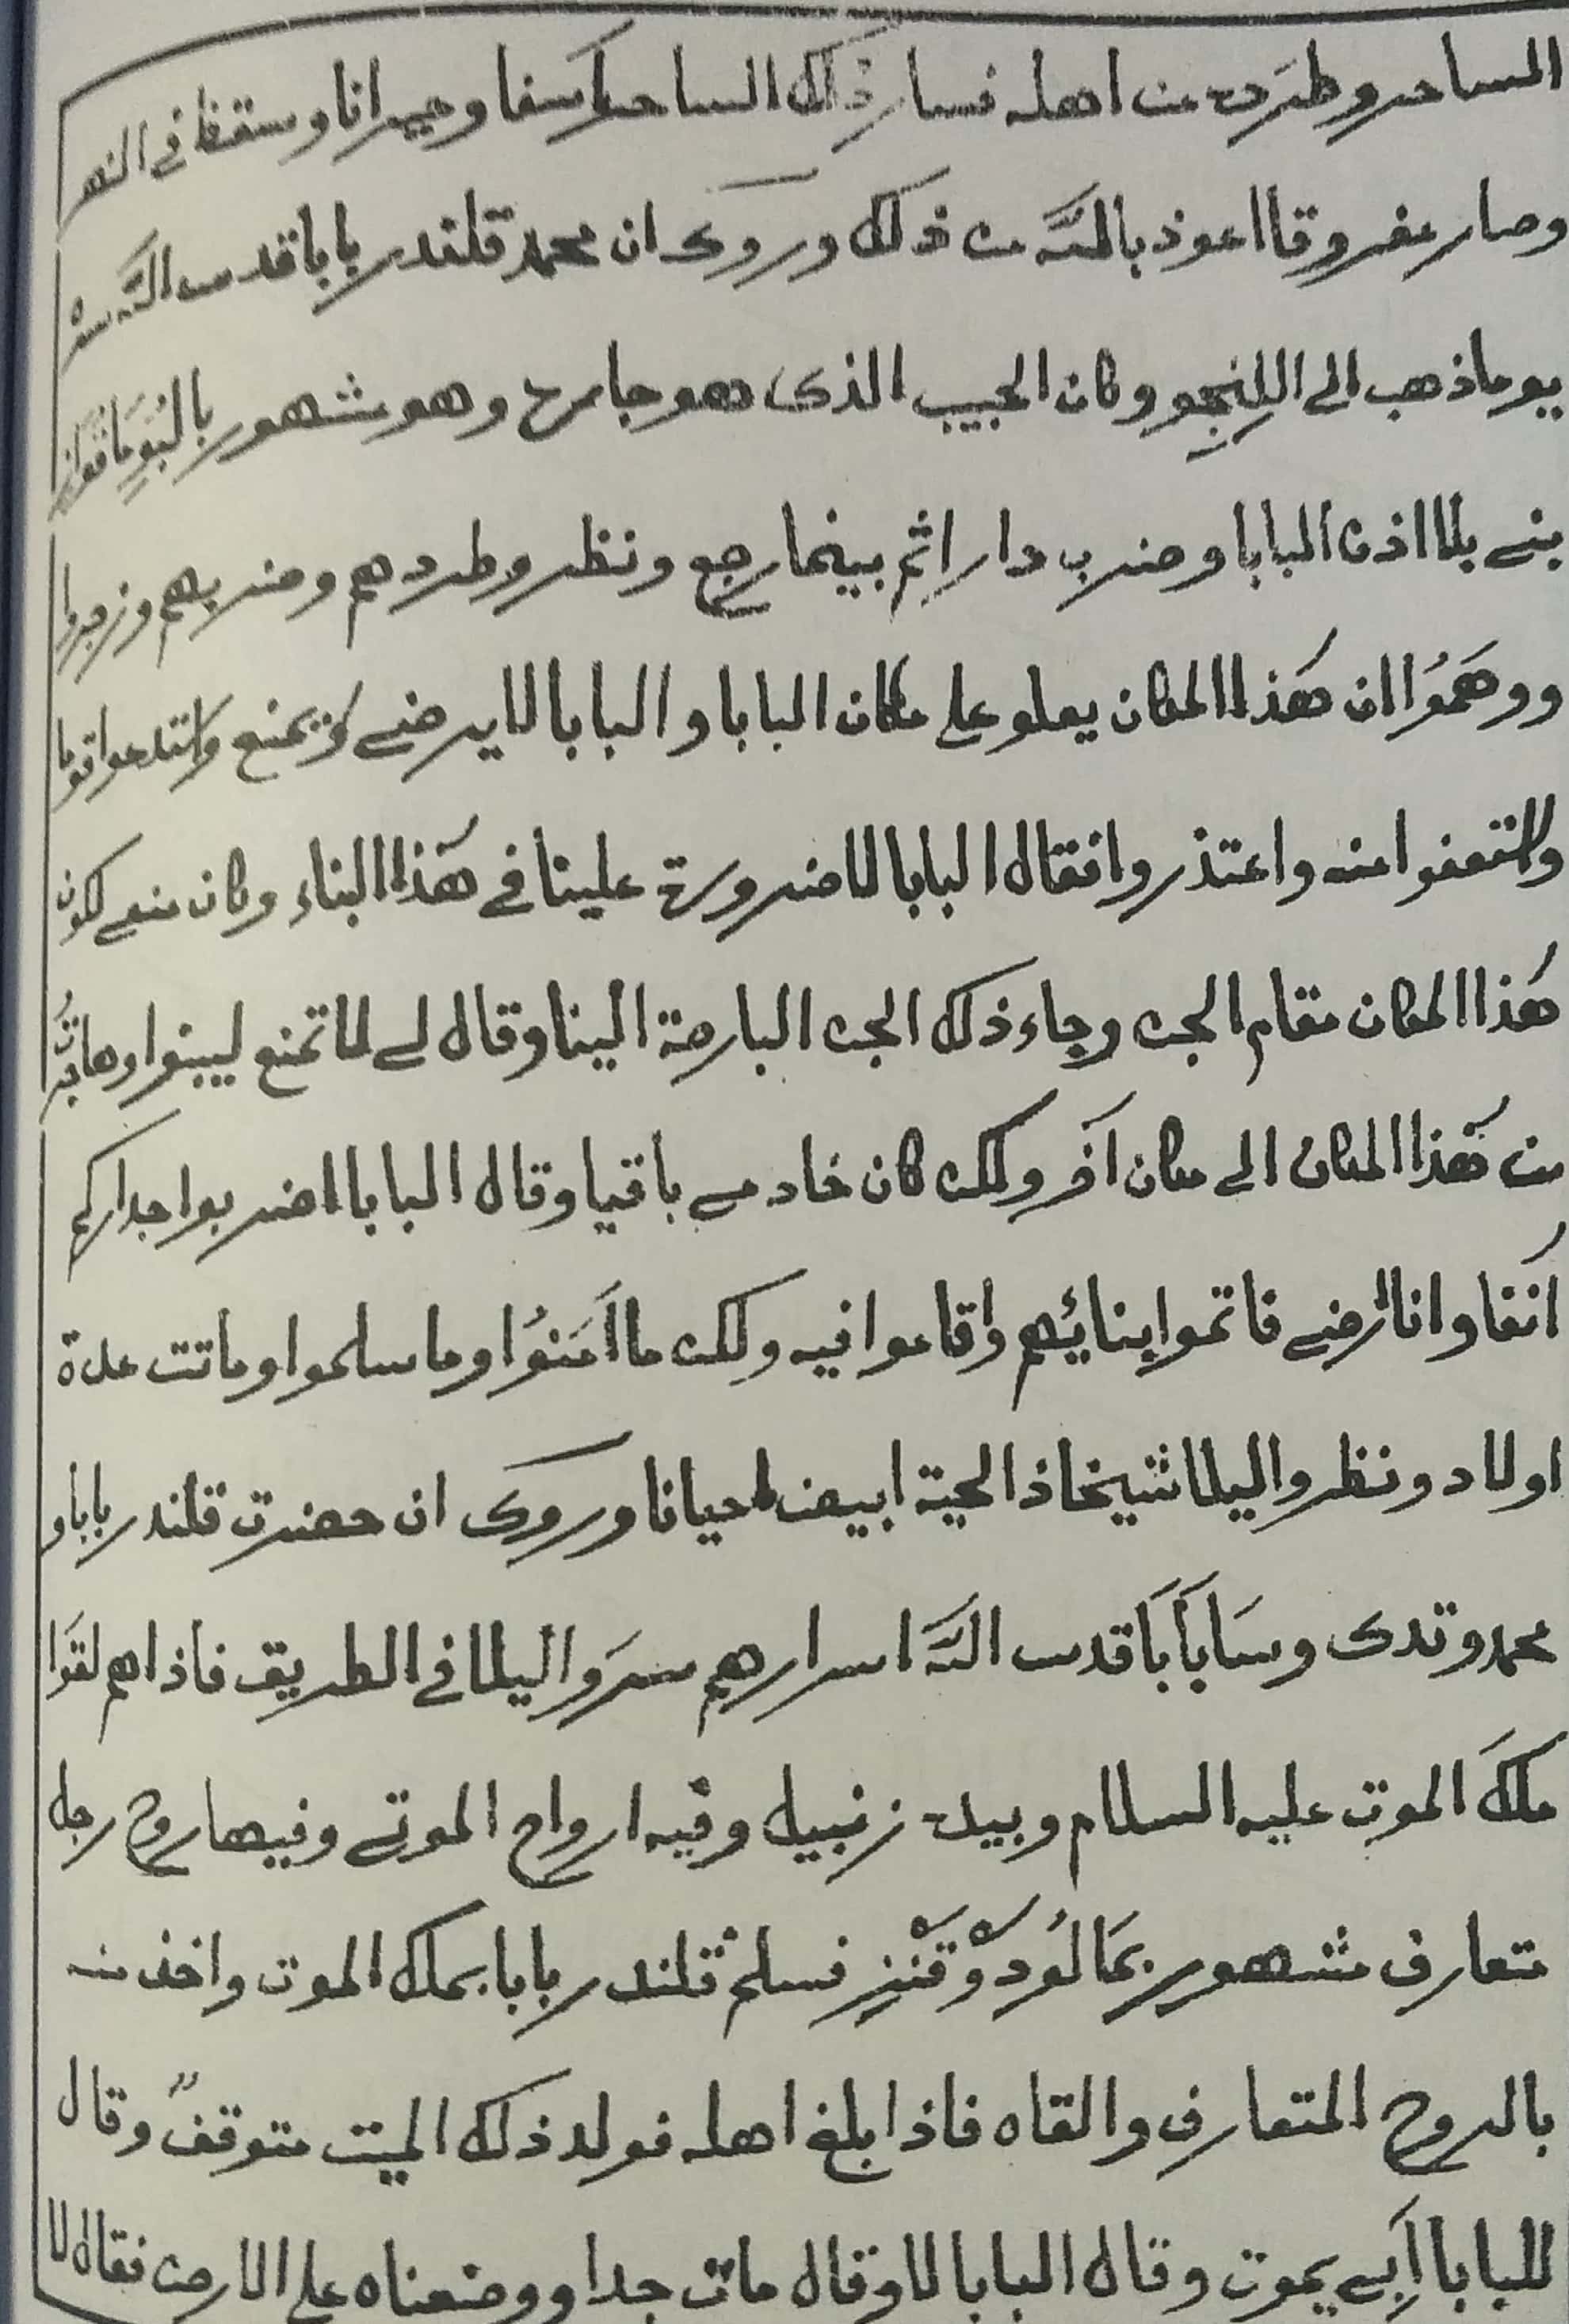 الساحر وطرده من اهله فسار ذلك الساحر كاسفا وحيرانا وسقط فى النهر
وصار مغروقا اعوذ بالله من ذلك وروى ان محمد قلندر بابا قدس الله سره
يوما ذهب الى اللنجو وكان الحبيب الذى هو جاره وهو مشهور
بنى بلا اذن البابا وضرب دارا ثم بينما رجع ونظر وطردهم وضربهم وزجروا
ووهَمُوا ان هٰذا المكان يعلو على مكان البابا والبابا لا يرضى ويمنع واستدعوا قوما
واستعفوا عنه واعتذروا فقال البابا لا ضرورة علينا فى هٰذا البناء وكان منعى لكون
هٰذا المكان مقام الجن وجاء ذلك الجن البارحة الينا وقال لى لا تمنع ليبنوا وهاجرتُ
من هٰذا المكان الى مكان آخر ولكن كان خادمى باقيا وقال البابا اضربوا جداركم
آنفا وانا ارضى فاتموا بنائهم واقاموا فيه ولكن ما اَمَنُوا وما سلموا وماتت عدة
اولاد ونظروا ليلا شيخا ذا لحية ابيض احيانا وروى ان حضرت قلندر بابا و
محمد وتدى وسَابَابَا قدس الله اسرارهم سرَوا ليلا فى الطريق فاذا هم لقَوا
ملَك الموت عليه السلام وبيده زنبيل وفيه ارواح الموتى وفيها روح رجل
متعارف مشهور فسلم قلندر بابا بملك الموت واخذ منه
بالروح المتعارف والقاه فاذا بلغ اهله فولد ذلك الميت متوقفٌ وقال
للبابا اَبى يموت وقال البابا لا وقال مات جدا ووضعناه على الارض فقال لا